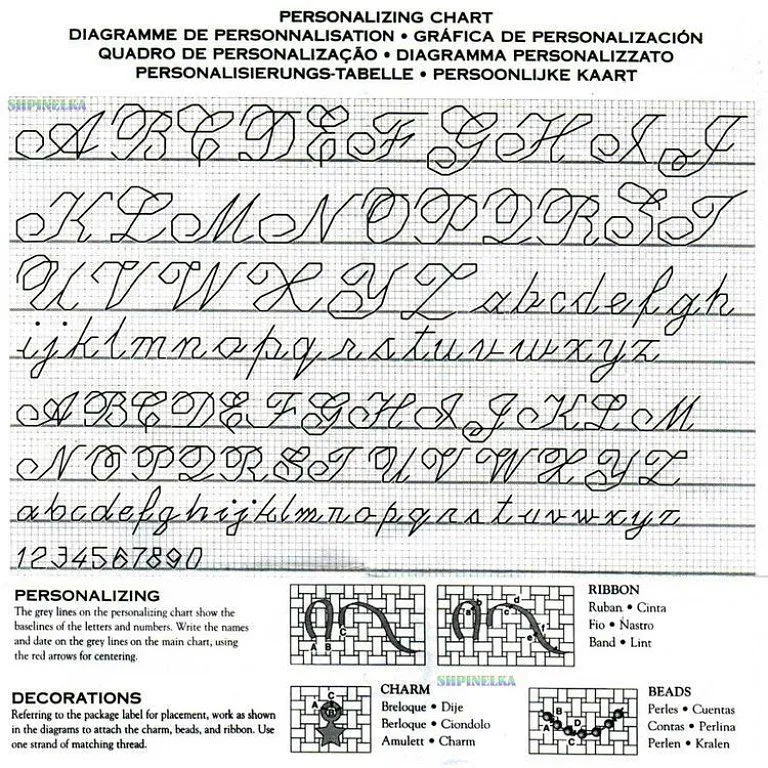 PERSONALIZING CHART
DIAGRAMME DE PERSONNALISATION • GRÁFICA DE PERSONALIZACIÓN
QUADRO DE PERSONALIZAÇÃO • DIAGRAMMA PERSONALIZZATO
PERSONALISIERUNGS-TABELLE • PERSOONLIJKE KAART
SHPINELKA
A B C D E F G H I J
K L M N O P Q R S T
U V W X Y Z a b c d e f g h
i j k l m n o p q r s t u v w x y z
A B C D E F G H I J K L M
N O P Q R S T U V W X Y Z
a b c d e f g h i j k l m n o p q r s t u v w x y z
1 2 3 4 5 6 7 8 9 0
PERSONALIZING
The grey lines on the personalizing chart show the
baselines of the letters and numbers. Write the names
and date on the grey lines on the main chart, using
the red arrows for centering.
A B C
a b c d e f
RIBBON
Ruban • Cinta
Fio • Nastro
Band • Lint
SHPINELKA
DECORATIONS
Referring to the package label for placement, work as shown
in the diagrams to attach the charm, beads, and ribbon. Use
one strand of matching thread.
A B C
CHARM
Breloque • Dije
Berloque • Ciondolo
Amulett • Charm
A B C D
BEADS
Perles • Cuentas
Contas • Perlina
Perlen • Kralen